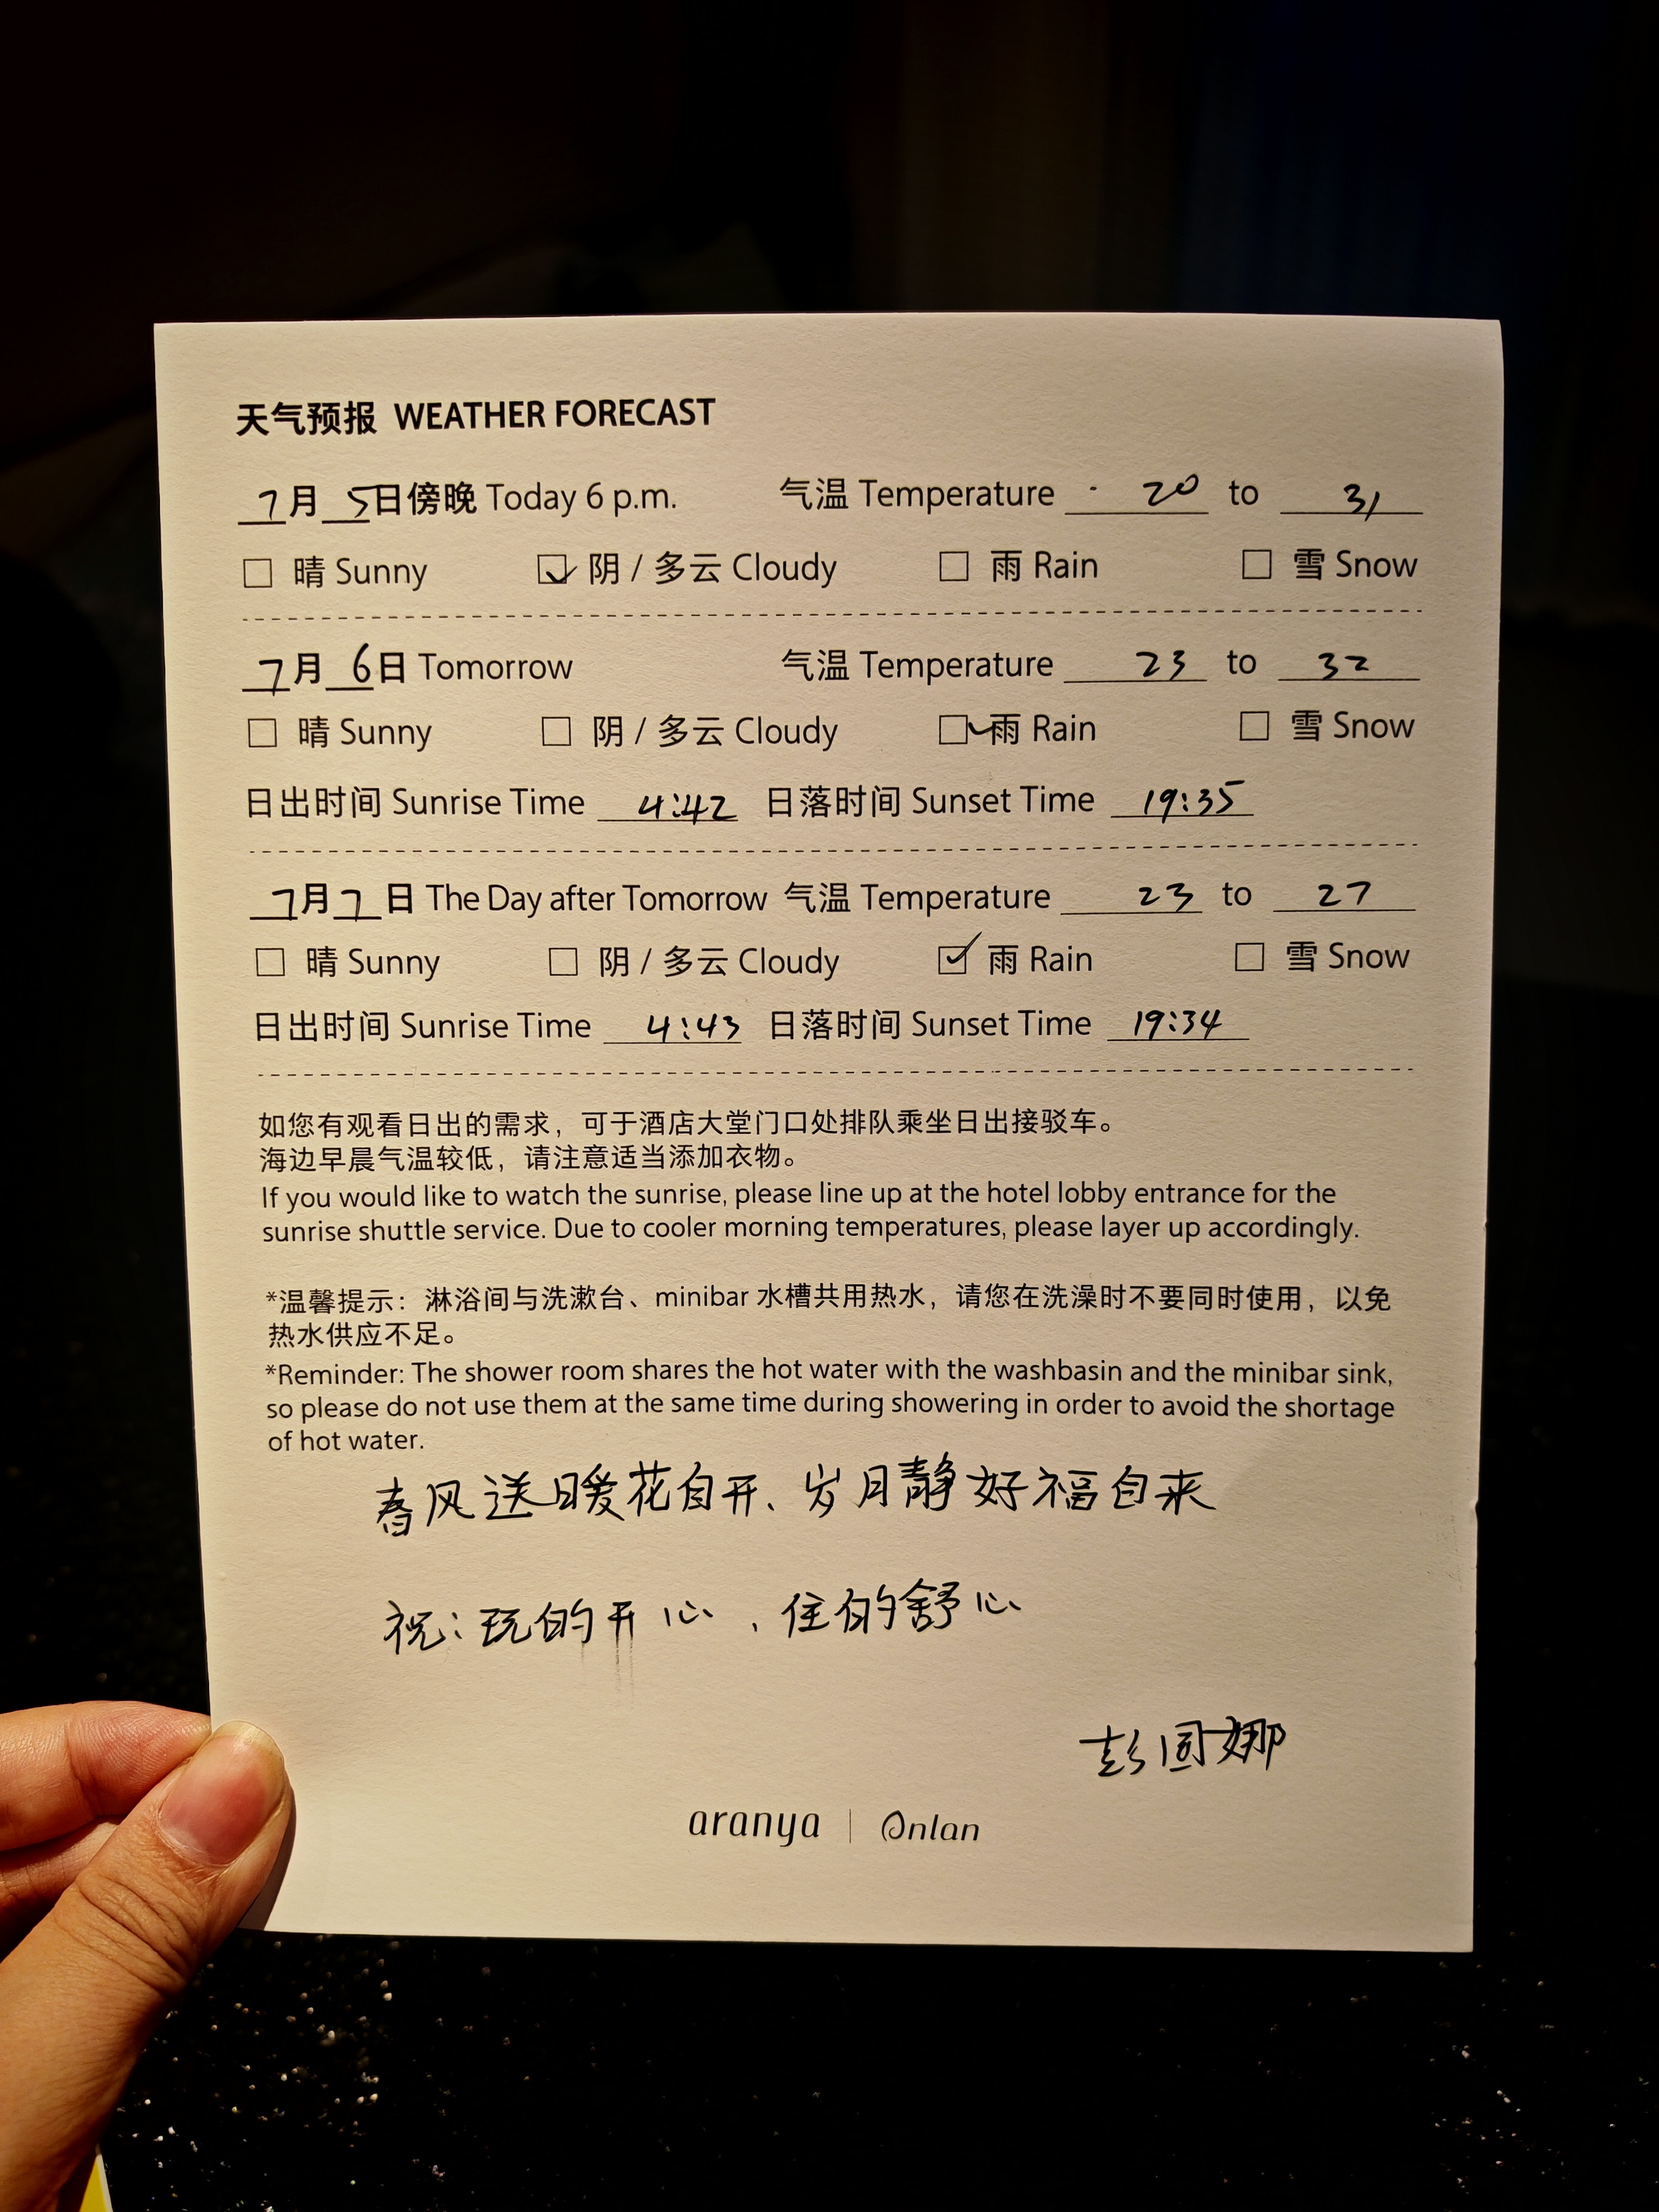 天气预报 WEATHER FORECAST
7月5日傍晚 Today 6 p.m. 气温 Temperature 20 to 31
晴 Sunny 阴 / 多云 Cloudy 雨 Rain 雪 Snow
7月6日 Tomorrow 气温 Temperature 23 to 32
晴 Sunny 阴 / 多云 Cloudy 雨 Rain 雪 Snow
日出时间 Sunrise Time 4:42 日落时间 Sunset Time 19:35
7月7日 The Day after Tomorrow 气温 Temperature 23 to 27
晴 Sunny 阴 / 多云 Cloudy 雨 Rain 雪 Snow
日出时间 Sunrise Time 4:43 日落时间 Sunset Time 19:34
如您有观看日出的需求，可于酒店大堂门口处排队乘坐日出接驳车。
海边早晨气温较低，请注意适当添加衣物。
If you would like to watch the sunrise, please line up at the hotel lobby entrance for the
sunrise shuttle service. Due to cooler morning temperatures, please layer up accordingly.
*温馨提示：淋浴间与洗漱台、minibar 水槽共用热水，请您在洗澡时不要同时使用，以免
热水供应不足。
*Reminder: The shower room shares the hot water with the washbasin and the minibar sink,
so please do not use them at the same time during showering in order to avoid the shortage
of hot water.
春风送暖花自开、岁月静好福自来
祝：玩的开心，住的舒心
彭国娜
aranya | Onlan